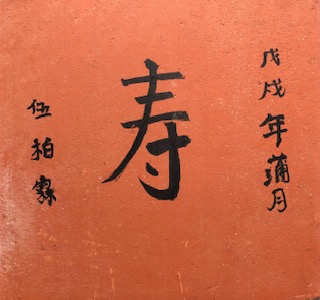 戊戌年蒲月
寿
伍柏霖